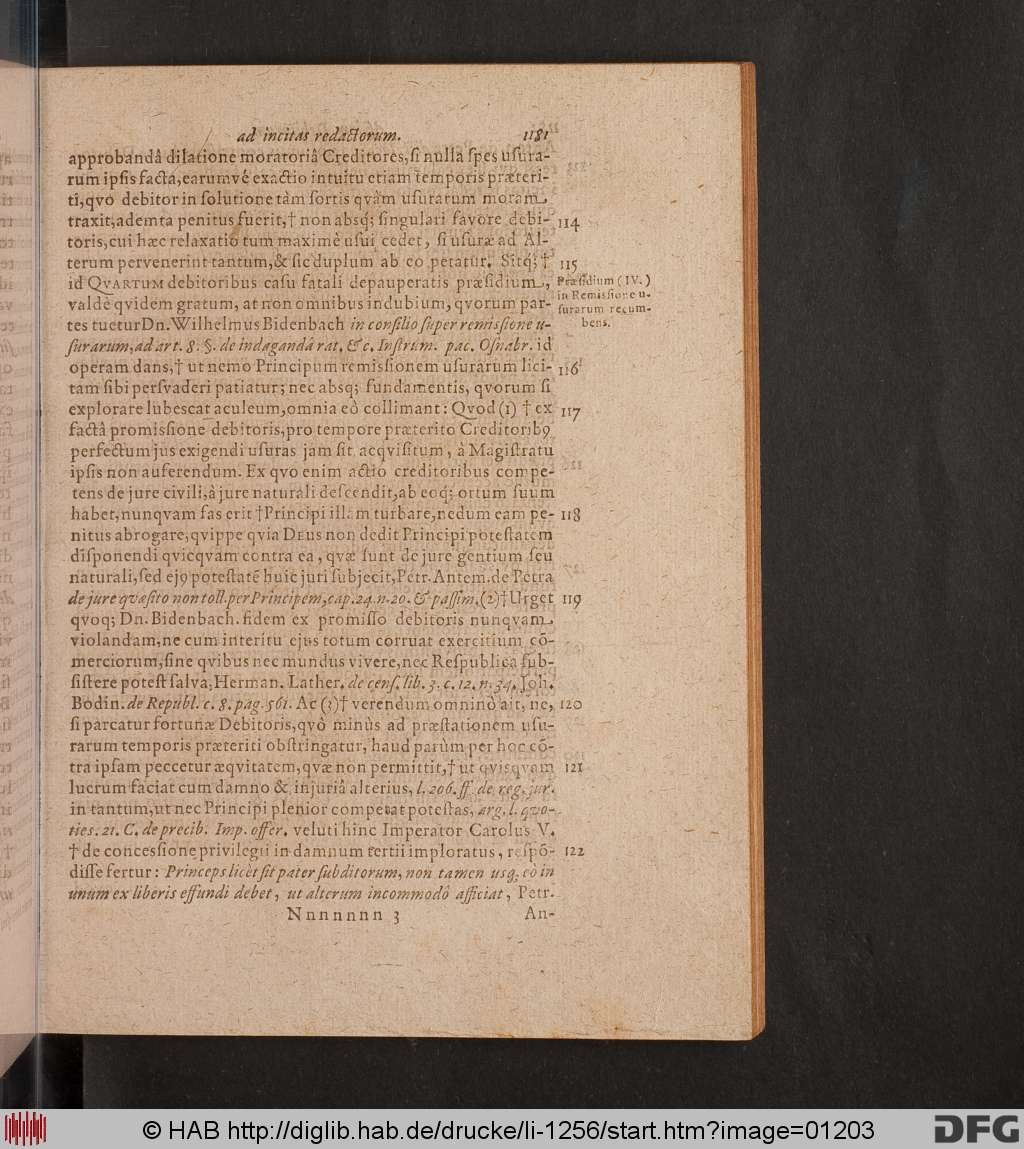 ad incitas redactorum. 1181
approbandâ dilatione moratoriâ Creditores, si nulla spes usura-
rum ipsis facta, earumvé exactio intuitu etiam temporis præteri-
ti, qvo debitor in solutione tàm sortis qvàm usurarum moram
traxit, ademta penitus fuerit, † non absq; singulari favore debi- 114
toris, cui hæc relaxatio tum maximè usui cedet, si usuræ ad Al-
terum pervenerint tantum, & sic duplum ab eo petatur. Sitq; † 115
id QVARTUM debitoribus casu fatali depauperatis præsidium, Præsidium (IV.)
valdè qvidem gratum, at non omnibus indubium, qvorum par- in Remissione u-
surarum recum-
tes tuetur Dn. Wilhelmus Bidenbach in consilio super remissione u- bens.
surarum, ad art. 8. §. de indaganda rat. &c. Instrum. pac. Osnabr. id
operam dans, † ut nemo Principum remissionem usurarum lici- 116
tam sibi persvaderi patiatur; nec absq; fundamentis, qvorum si
explorare lubescat aculeum, omnia eò collimant: Qvod (1) † ex 117
factâ promissione debitoris, pro tempore præterito Creditoribꝰ
perfectum jus exigendi usuras jam sit acqvisitum, à Magistratu
ipsis non auferendum. Ex qvo enim actio creditoribus compe-
tens de jure civili, à jure naturali descendit, ab eoq; ortum suum
habet, nunqvam fas erit † Principi illam turbare, nedum eam pe- 118
nitus abrogare, qvippe qvia DEus non dedit Principi potestatem
disponendi qvicqvam contra ea, qvæ sunt de jure gentium seu
naturali, sed ejꝰ potestatē huic juri subjecit, Petr. Antem. de Petra
de jure qvæsito non toll. per Principem, cap. 24. n. 20. & passim. (2) † Urget 119
qvoq; Dn. Bidenbach. fidem ex promisso debitoris nunqvam
violandam, ne cum interitu ejus totum corruat exercitium cō-
merciorum, sine qvibus nec mundus vivere, nec Respublica sub-
sistere potest salva, Herman. Lather. de cens. lib. 3. c. 12. n. 34. Joh.
Bodin. de Republ. c. 8. pag. 561. Ac (3) † verendum omninò ait, ne, 120
si parcatur fortunæ Debitoris, qvò minùs ad præstationem usu-
rarum temporis præteriti obstringatur, haud parùm per hoc cō-
tra ipsam peccetur æqvitatem, qvæ non permittit, † ut qvisqvam 121
lucrum faciat cum damno & injuriâ alterius, l. 206. ff. de reg. jur.
in tantum, ut nec Principi plenior competat potestas, arg. l. qvo-
ties. 21. C. de precib. Imp. offer. veluti hinc Imperator Carolus V.
† de concessione privilegii in damnum tertii imploratus, respō- 122
disse fertur: Princeps licèt sit pater subditorum, non tamen usq; eò in
unum ex liberis effundi debet, ut alterum incommodô afficiat, Petr.
Nnnnnnn 3 An-
© HAB http://diglib.hab.de/drucke/li-1256/start.htm?image=01203
DFG